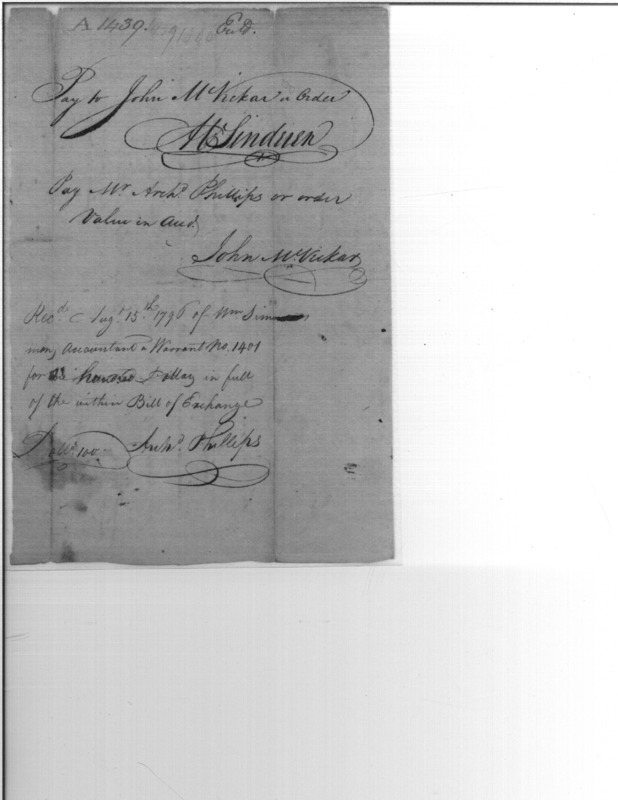 A 1439. Entd.
Pay to John McVickar or Order
Pay Mr Archd. Phillips or order
Value in
John McVickar
Recd. Augt 15th 1796 of Wm Sim
mons Accountant a Warrant No. 1401
for hundred Dollars in full
of the within Bill of Exchange
Dolls. 100 Archd. Phillips